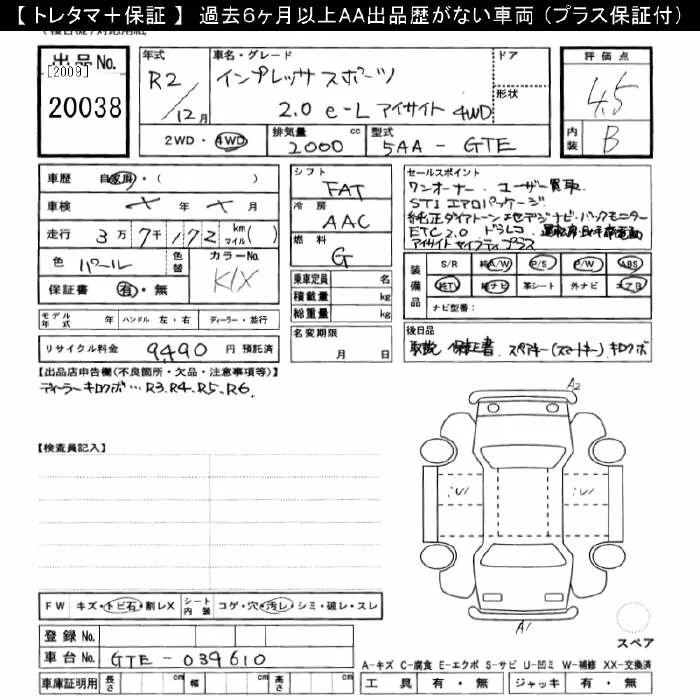 【 トレタマ＋保証 】 過去6ヶ月以上AA出品歴がない車両（プラス保証付）
出品No.
[2009]
20038
年式 車名・グレード ドア
R2/12月 インプレッサスポーツ
2.0 e-L アイサイト 4WD 形状
2WD・4WD 排気量 2000 cc 型式 5AA - GTE
評価点
4.5
内装 B
車歴 自家用・( )
車検 × 年 × 月
走行 3万7千172 km(マイル)
色 パール 色替 カラーNo. K1X
保証書 有・無
シフト
FAT
冷房
AAC
燃料
G
乗車定員 名
積載量 kg
総重量 kg
セールスポイント
ワンオーナー. ユーザー買取
STI エアロパッケージ
純正ダイアトーン 8型デジナビ バックモニター
ETC2.0 ドラレコ
アイサイト セイフティプラス
装備品 S/R 純A/W P/S P/W ABS
純TV 純ナビ 革シート 外ナビ エアB
ナビ型番：
モデル年式 年 ハンドル 左・右 ディーラー・並行
リサイクル料金 9490 円 預託済
名変期限
月 日
後日品
取説 保証書. スペアキー(スマートキー) キロクボ
【出品店申告欄(不良箇所・欠品・注意事項等)】
ディーラーキロクボ… R3. R4. R5. R6.
【検査員記入】
A2
A1
スペア
FW キズ・トビ石・割レX シート内装 コゲ・穴・汚レ・シミ・破レ・スレ
登録 No.
車台 No. GTE - 039610
車庫証明用 長さ cm 幅 cm 高さ cm
A-キズ C-腐食 E-エクボ S-サビ U-凹ミ W-補修 XX-交換済
工具 有・無 ジャッキ 有・無